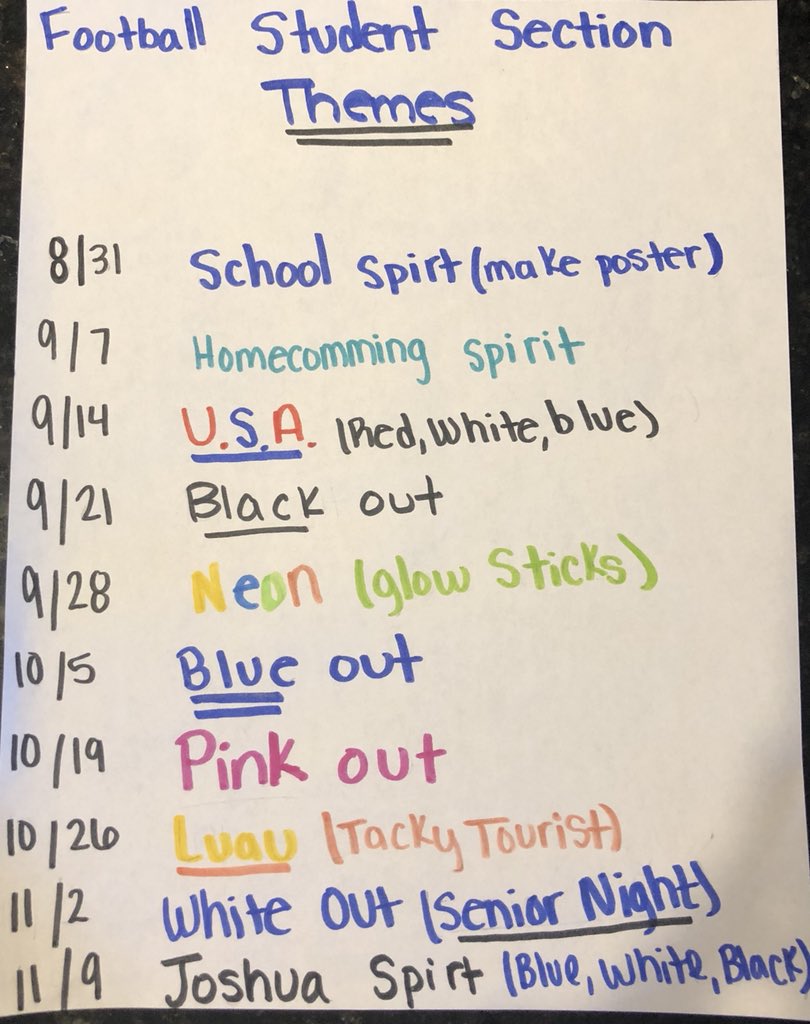 Football Student Section
Themes
8/31 School Spirt (make poster)
9/7 Homecomming spirit
9/14 U.S.A. (Red, White, blue)
9/21 Black out
9/28 Neon (glow Sticks)
10/5 Blue out
10/19 Pink out
10/26 Luau (Tacky Tourist)
11/2 White Out (Senior Night)
11/9 Joshua Spirt (Blue, White, Black)